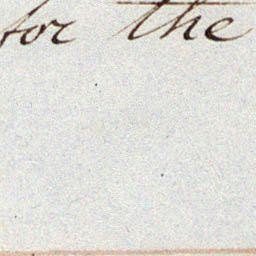 for the